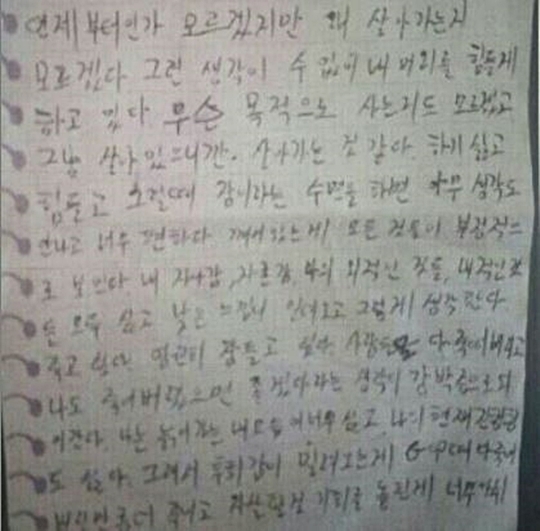 언제부터인가 모르겠지만 왜 살아가는지
모르겠다 그런 생각이 수 없이 내 머리를 힘들게
하고 있다 무슨 목적으로 사는지도 모르겠고
그냥 살아있으니깐. 살아가는 것 같다. 하기 싫고
힘들고 그럴때 잠이라는 수면을 하면 아무 생각도
안나고 너무 편하다 깨어있는게 모든 것들이 부정적으
로 보인다. 내 자존감, 외적인 것들, 내적인것
은 모두 싫고 낮은 느낌이 그렇게 생각한다.
죽고 싶다. 영원히 잠들고 싶다. 사람들을 다 죽여버리고
나도 죽어버렸으면 좋겠다라는 생각이 강박증으로 되
어간다. 나는 늙어가는 내모습이 너무 싫고 나의 현재
도 싫다. 그래서 후회감이 밀려오는게 GOP때 다죽여
죽이고 자살할 기회를 놓친게 너무